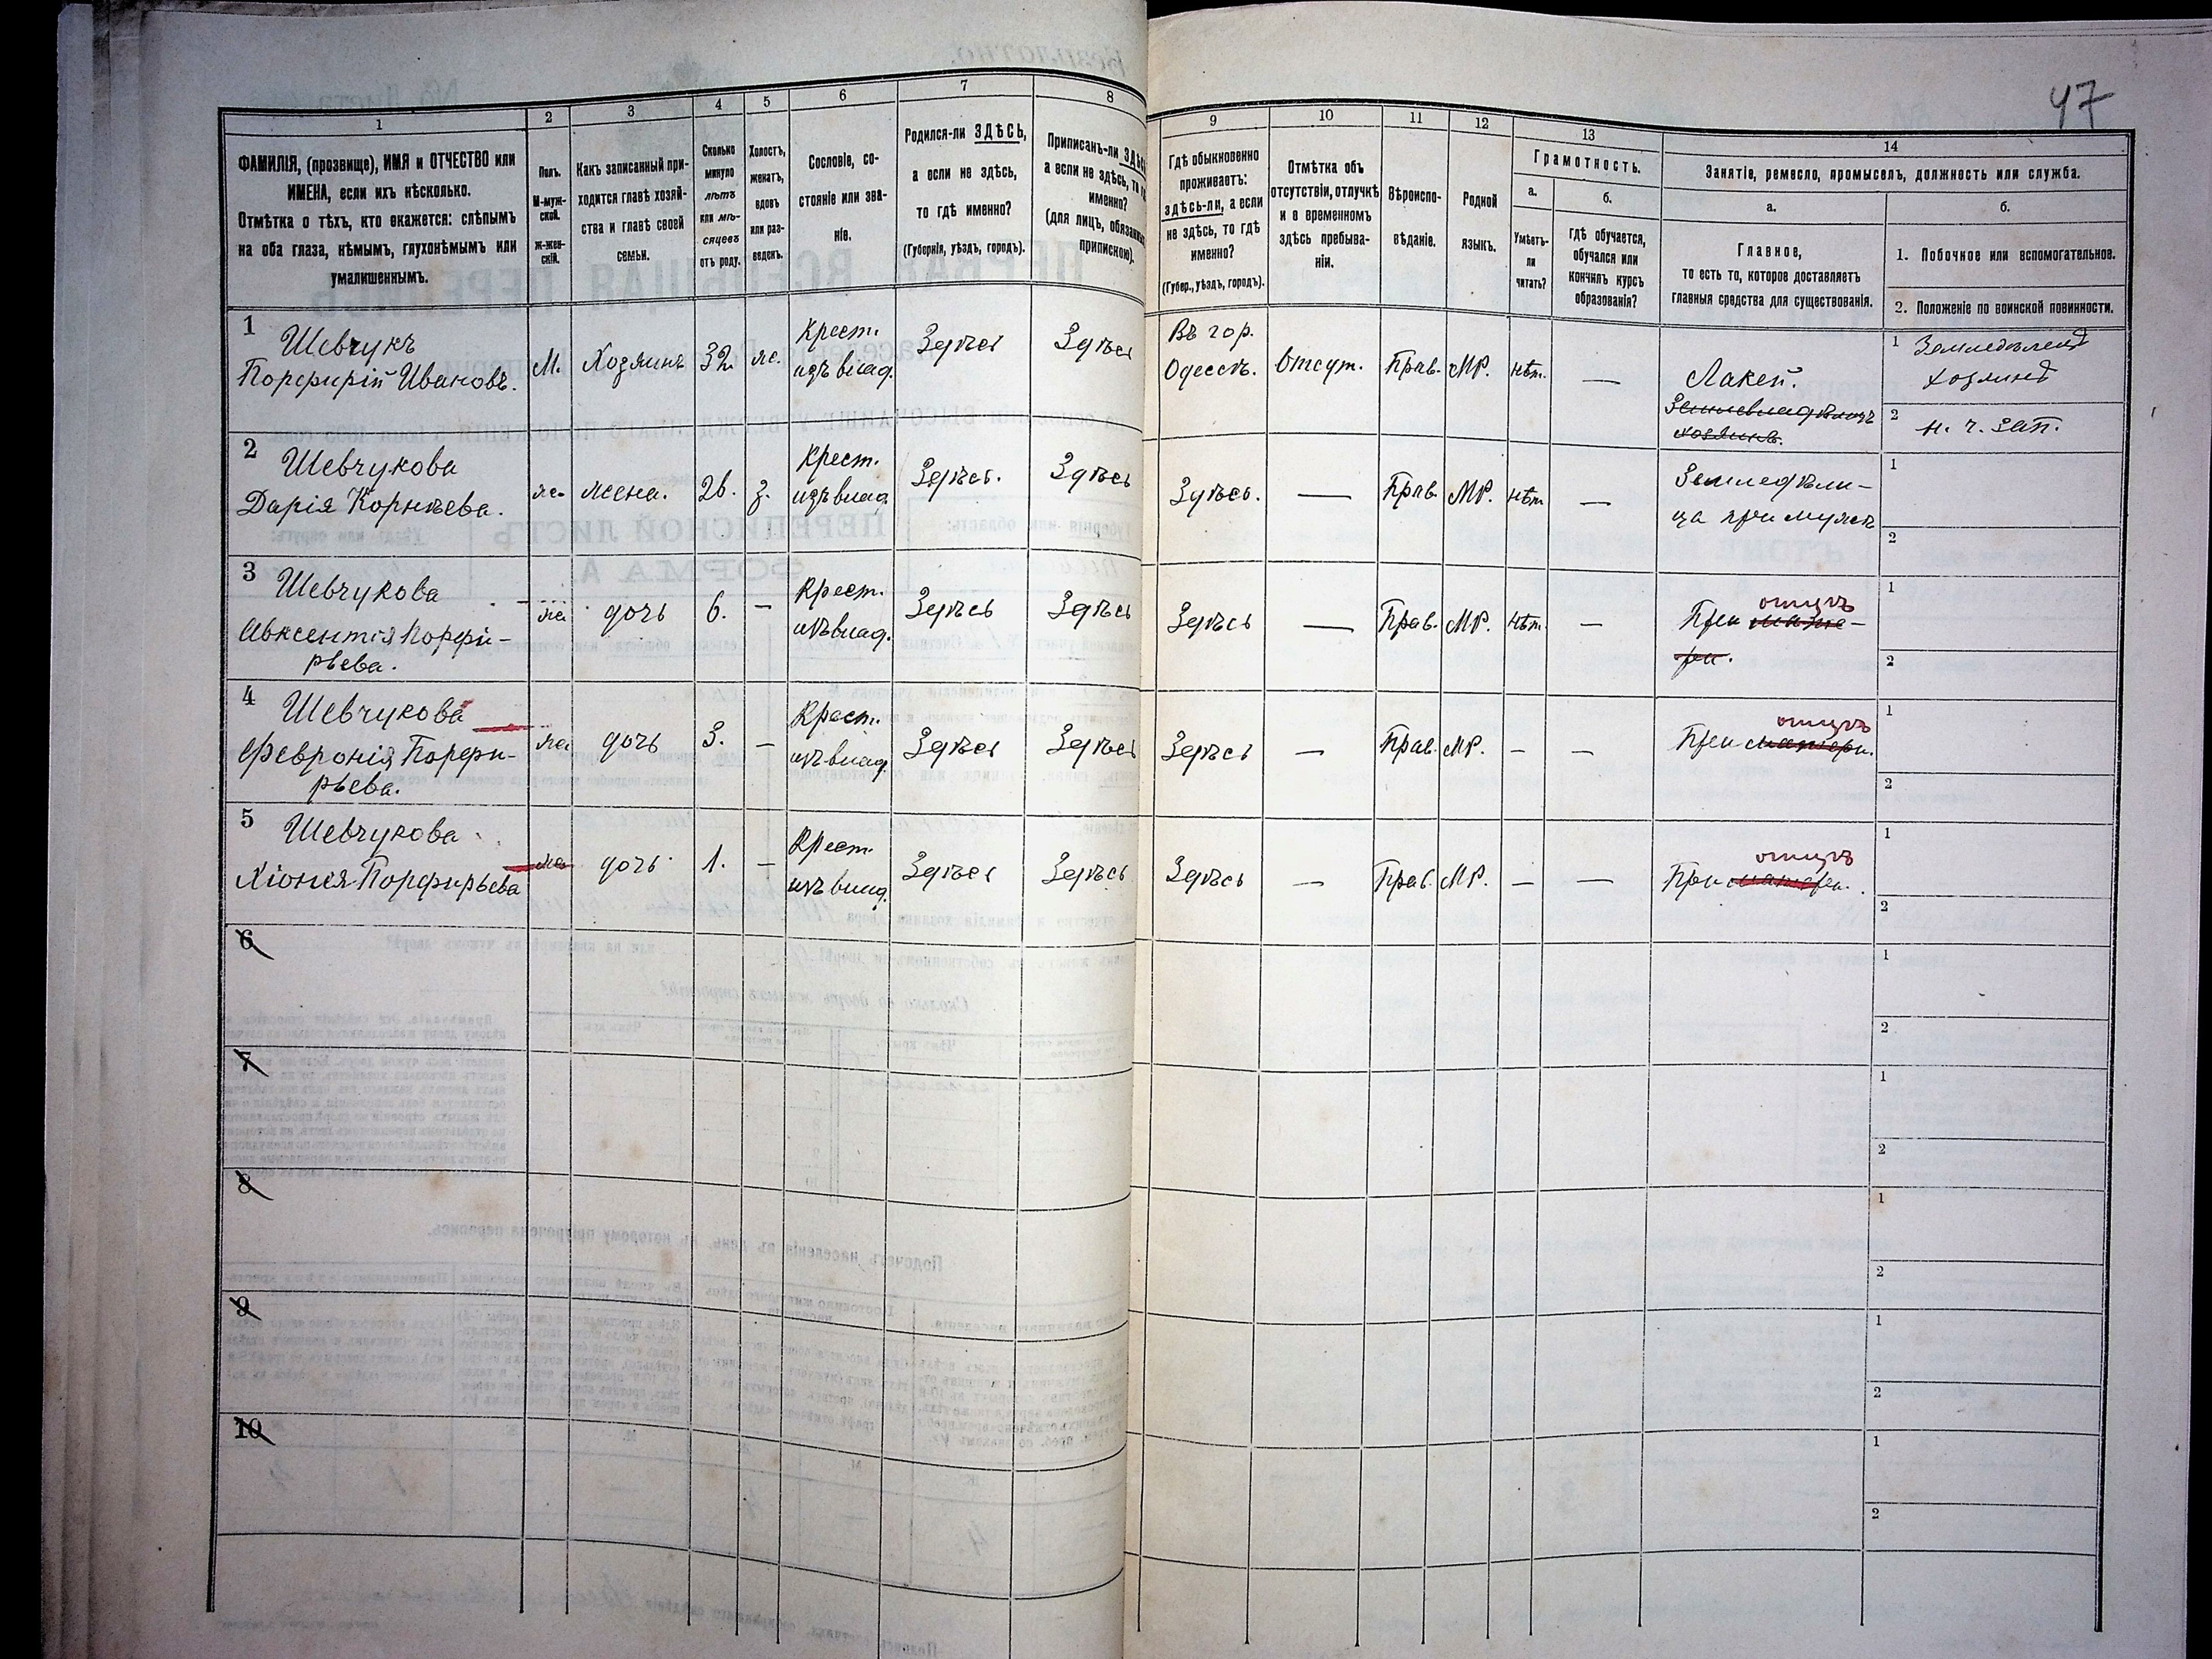 47
1
ФАМИЛІЯ, (прозвище), ИМЯ и ОТЧЕСТВО или
ИМЕНА, если ихъ нѣсколько.
Отмѣтка о тѣхъ, кто окажется: слѣпымъ
на оба глаза, нѣмымъ, глухонѣмымъ или
умалишеннымъ.
2
Полъ.
М-муж-
ской.
Ж-жен-
скій.
3
Какъ записанный при-
ходится главѣ хозяй-
ства и главѣ своей
семьи.
4
Сколько
минуло
лѣтъ
или мѣ-
сяцевъ
отъ роду.
5
Холостъ,
женатъ,
вдовъ
или раз-
веденъ.
6
Сословіе, со-
стояніе или зва-
ніе.
7
Родился-ли ЗДѢСЬ,
а если не здѣсь,
то гдѣ именно?
(Губернія, уѣздъ, городъ).
8
Приписанъ-ли ЗДѢС
а если не здѣсь, то г
именно?
(для лицъ, обязанн
припискою).
9
Гдѣ обыкновенно
проживаетъ:
здѣсь-ли, а если
не здѣсь, то гдѣ
именно?
(Губер., уѣздъ, городъ).
10
Отмѣтка объ
отсутствіи, отлучкѣ
и о временномъ
здѣсь пребыва-
ніи.
11
Вѣроиспо-
вѣданіе.
12
Родной
языкъ.
13
Грамотность.
а.
Умѣетъ-
ли
читать?
б.
Гдѣ обучается,
обучался или
кончилъ курсъ
образованія?
14
Занятіе, ремесло, промыселъ, должность или служба.
а.
Главное,
то есть то, которое доставляетъ
главныя средства для существованія.
б.
1. Побочное или вспомогательное.
2. Положеніе по воинской повинности.
1
Шевчукъ
Порфирій Ивановъ.
М.
Хозяинъ
32
ж.
Крест.
изъ влад.
Здѣсь
Здѣсь
Въ гор.
Одессѣ.
Отсут.
Прав.
МР.
нѣт.
—
Лакей.
Землевладѣлецъ
хозяинъ.
1 Земледѣлецъ
хозяинъ
2 н. ч. зап.
2
Шевчукова
Дарія Корнѣева.
ж.
жена.
26.
з.
Крест.
изъ влад.
Здѣсь.
Здѣсь
Здѣсь.
—
Прав.
МР.
нѣт.
—
Земледѣли-
ца при мужѣ
1
2
3
Шевчукова
Авксентія Порфи-
рьева.
ж.
дочь
6.
—
Крест.
изъ влад.
Здѣсь
Здѣсь
Здѣсь
—
Прав.
МР.
нѣт.
—
отцѣ
При мате-
ри.
1
2
4
Шевчукова
Февронія Порфи-
рьева.
ж.
дочь
3.
—
Крест.
изъ влад.
Здѣсь
Здѣсь
Здѣсь
—
Прав.
МР.
—
—
отцѣ
При матери.
1
2
5
Шевчукова
Хіонія Порфирьева
ж.
дочь
1.
—
Крест.
изъ влад.
Здѣсь
Здѣсь
Здѣсь
—
Прав.
МР.
—
—
отцѣ
При матери.
1
2
6
1
2
7
1
2
8
1
2
9
1
2
10
1
2